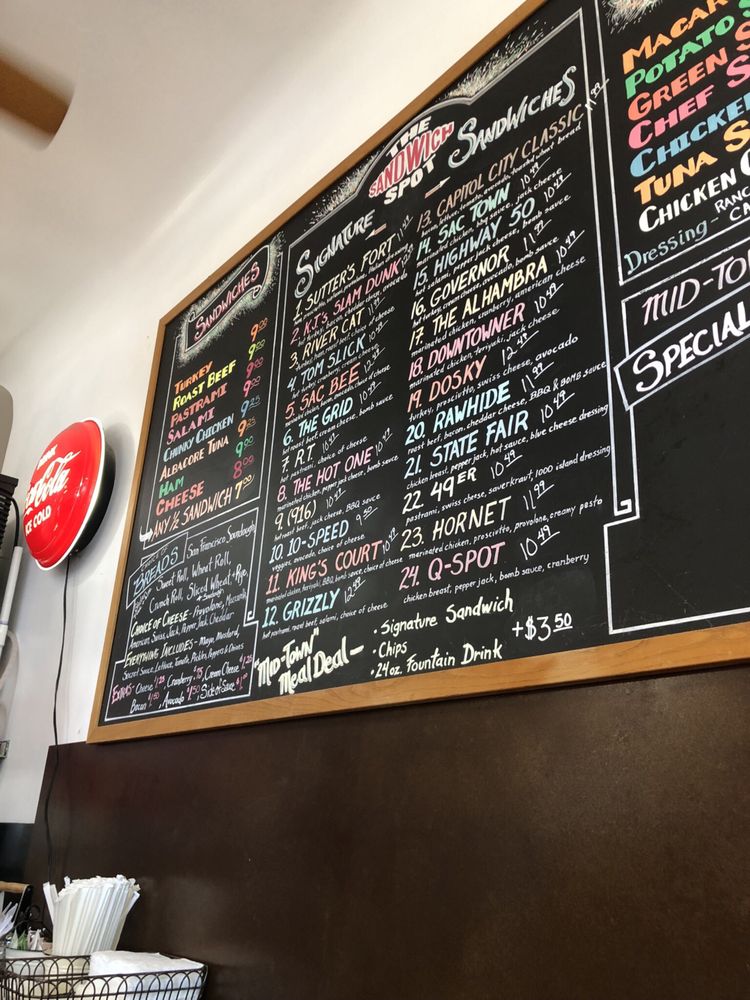 DRINK
Coca-Cola
ICE COLD
SANDWICHES
TURKEY
ROAST BEEF
PASTRAMI
SALAMI
CHUNKY CHICKEN
ALBACORE TUNA
HAM
CHEESE
ANY 1/2 SANDWICH 7.00
BREADS San Francisco Sourdough
Sweet Roll, Wheat Roll,
Crunch Roll, Sliced Wheat, Rye,
CHOICE OF CHEESE - Provolone, Mozzarella
American, Swiss, Jack, Pepper Jack, Cheddar
EVERYTHING INCLUDES - Mayo, Mustard,
Secret Sauce, Lettuce, Tomato, Pickles, Peppers & Onions
EXTRAS - Cheese Cranberry Cream Cheese
Bacon Avocado Side of Sauce
THE
SANDWICH
SPOT
SIGNATURE SANDWICHES
1. SUTTER'S FORT
2. KJ'S SLAM DUNK
3. RIVER CAT
4. TOM SLICK
5. SAC BEE
6. THE GRID
roast beef, cream cheese, bomb sauce
7. R.T.
hot pastrami, choice of cheese
8. THE HOT ONE
marinated chicken, pepper jack cheese, bomb sauce
9. (916)
roast beef, jack cheese, BBQ sauce
10. 10-SPEED 9.50
veggies, avocado, choice of cheese
11. KING'S COURT
marinated chicken, teriyaki, BBQ, bomb sauce, choice of cheese
12. GRIZZLY 12.99
hot pastrami, roast beef, salami, choice of cheese
13. CAPITOL CITY CLASSIC 11.99
14. SAC TOWN 10.49
marinated chicken, bbq sauce, jack cheese
15. HIGHWAY 50 10.49
16. GOVERNOR 11.99
hot turkey, cream cheese, avocado, bomb sauce
17. THE ALHAMBRA 10.49
marinated chicken, cranberry, american cheese
18. DOWNTOWNER 10.49
marinated chicken, teriyaki, jack cheese
19. DOSKY 12.49
turkey, prosciutto, swiss cheese, avocado
20. RAWHIDE 11.99
roast beef, bacon, cheddar cheese, BBQ & BOMB sauce
21. STATE FAIR 10.49
chicken breast, pepper jack, hot sauce, blue cheese dressing
22. 49ER 10.49
pastrami, swiss cheese, saverkraut, 1000 island dressing
23. HORNET 11.99
marinated chicken, prosciutto, provolone, creamy pesto
24. Q-SPOT 10.49
chicken breast, pepper jack, bomb sauce, cranberry
"MID-TOWN"
Meal Deal -
• Signature Sandwich
• Chips
• 24 oz. Fountain Drink
+$3.50
MACAR
POTATO S
GREEN S
CHEF S
CHICKEN
TUNA S
CHICKEN C
Dressing - RANC
CA
MID-TO
SPECIAL